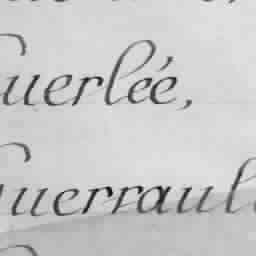 uerlée,
uerraul